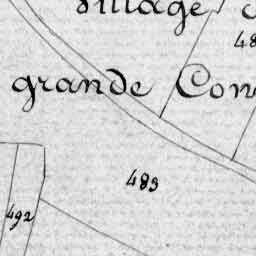 village
48
grande Con
483
492